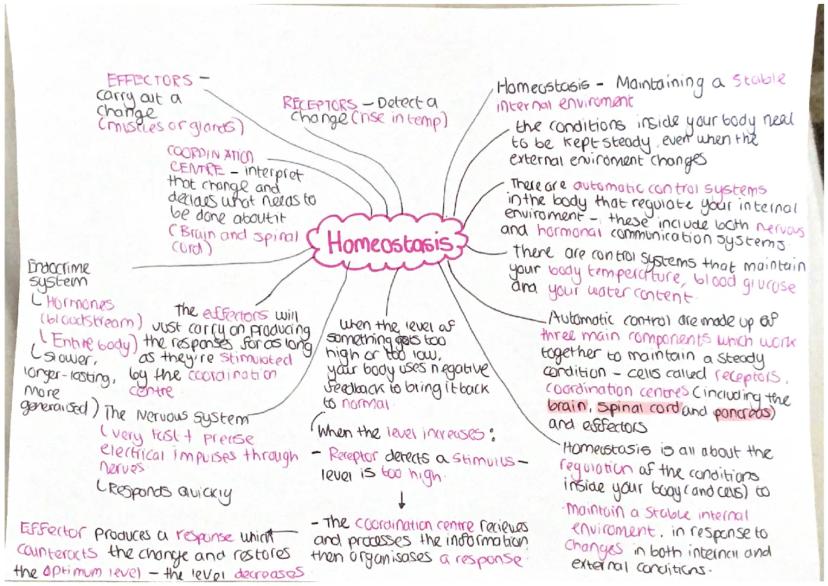 EFFECTORS –
carry out a
change
(muscles or glands)
RECEPTORS – Detect a
change (rise in temp)
COORDINATION
CENTRE – interpret
that change and
decides what needs to
be done about it
(Brain and spinal
cord)
Homeostasis
Homeostasis – Maintaining a stable
internal enviroment
the conditions inside your body need
to be kept steady, even when the
external enviroment changes
There are automatic control systems
in the body that regulate your internal
enviroment – these include both nervous
and hormonal communication systems.
There are control systems that maintain
your body temperature, blood glucose
and your water content.
Automatic control are made up of
three main components which work
together to maintain a steady
condition – cells called receptors,
coordination centres (including the
brain, spinal cord and pancreas)
and effectors
Homeostasis is all about the
regulation of the conditions
inside your body (and cells) to
maintain a stable internal
enviroment, in response to
changes in both internal and
external conditions.
Endocrime
system
Hormones
(bloodstream)
(Entire body)
(slower,
longer-lasting,
more
generalised)
The effectors will
Just carry on producing
the responses for as long
as they're stimulated
by the coordination
centre
The Nervous system
(very fast + precise
electrical impulses through
nerves
Responds quickly
When the level of
something gets too
high or too low,
your body uses negative
feedback to bring it back
to normal
When the level increases:
- Receptor detects a stimulus –
level is too high.
↓
- The coordination centre recieves
and processes the information
then organises a response
Effector produces a response which
counteracts the change and restores
the optimum level – the level decreases